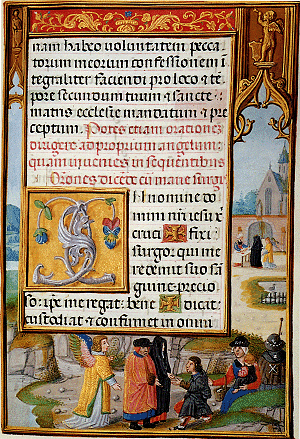 nam habeo voluntatem pecca
torum meorum confessionem i
tegraliter faciendi pro loco & te
pore secundum tuum & sancte
matris ecclesie mandatum & pre
ceptum. Potes etiam orationem
dirigere ad proprium angelum:
quam invenies in sequentibus
Orones dicede cu mane surgis
In nomine do
mini nri iesu x
cruci fixi
surgo: qui me
redemit suo sa
guine precio
so: ipe me regat: bene dicat:
custodiat & confirmet in omni